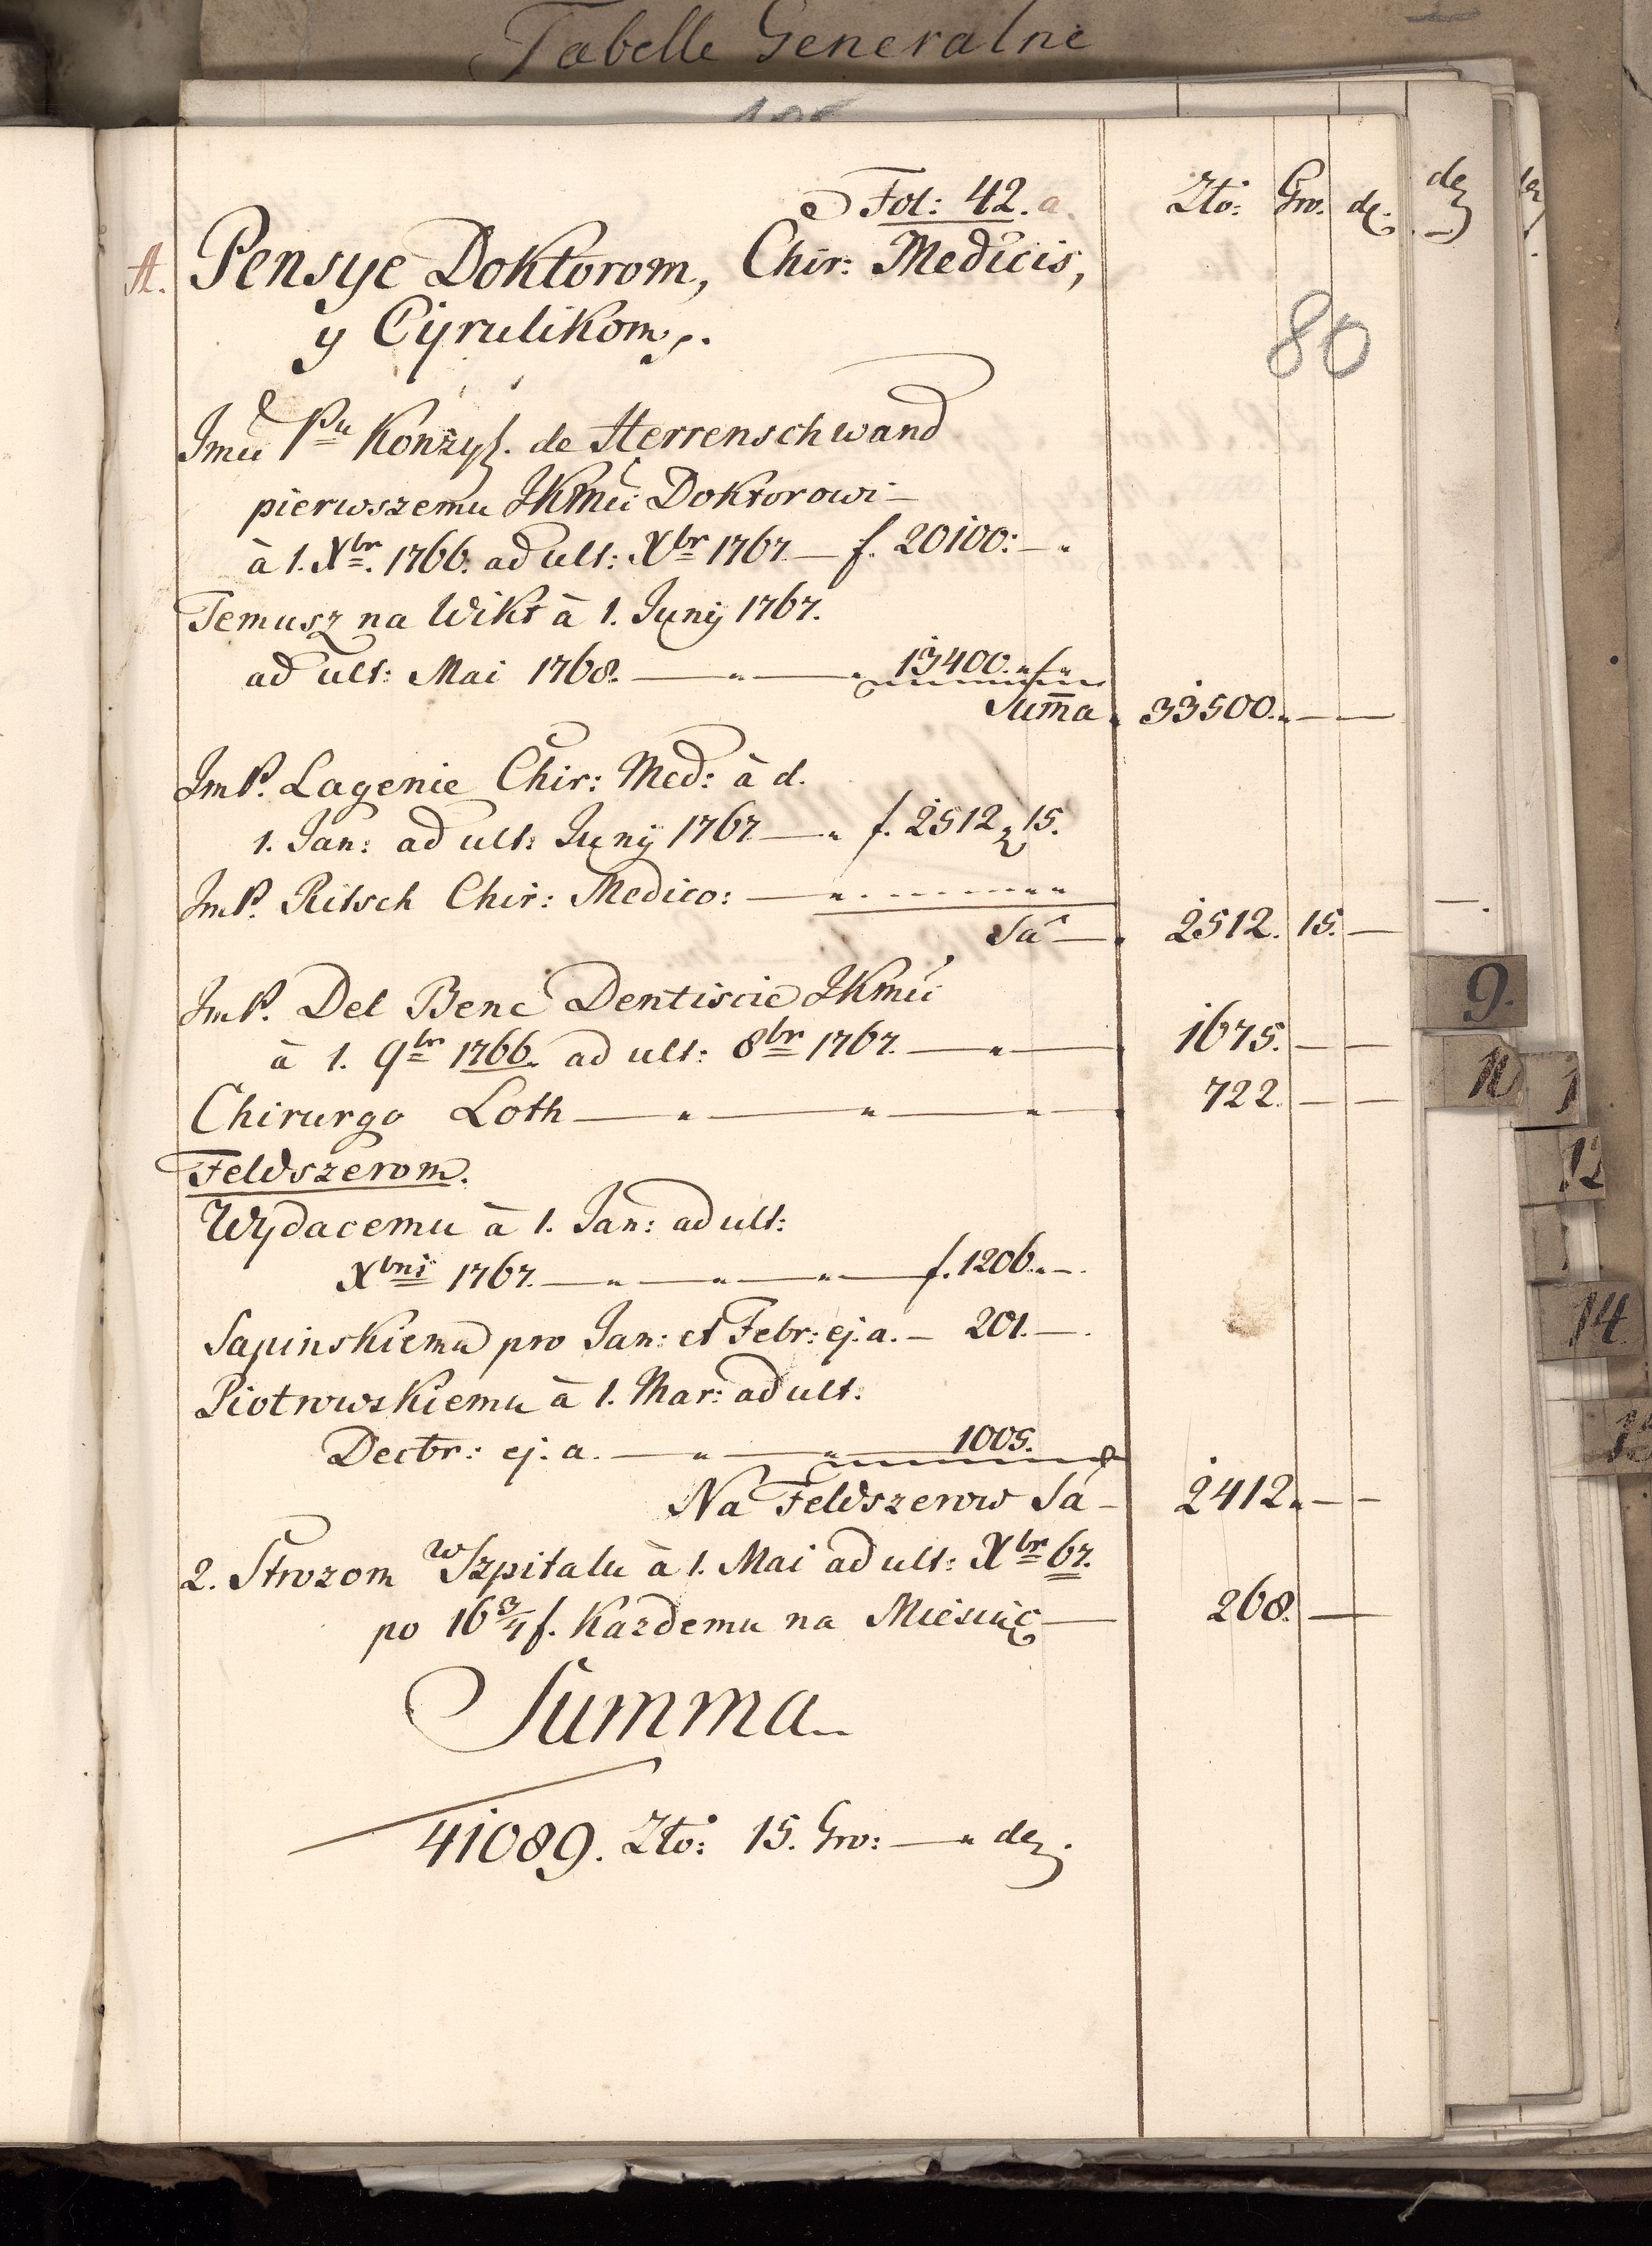 Tabelle Generalne
Fol: 42. a.
Zło: Gro. de:
A. Pensye Doktorom, Chir: Medicis,
y Cyrulikom.
80
Jmći Pu Konzyl. de Herrenschwand
pierwszemu JKmći Doktorowi —
à 1. Xbr. 1766. ad ult: Xbr 1767 — f. 20100: — „
Temusz na Wikt à 1. Junij 1767.
ad ult: Mai 1768. — „ — „ 13400. „ „
Sum̄a 33500. „ — —
JmP. Lagenie Chir: Med: à d.
1. Jan: ad ult: Junij 1767 — „ f. 2512 „ 15.
JmP. Ritsch Chir: Medico: — „
Sa — 2512. 15. —
JmP. Del Bene Dentiscie JKmći
à 1. 9br 1766. ad ult: 8br 1767. — „ — 1675. — —
Chirurgo Loth — „ — „ — „ — 722. — —
Feldszerom.
Wydacemu à 1. Jan: ad ult:
Xbris 1767. — „ — „ — „ — f. 1206. „ —
Sapinskiemu pro Jan: et Febr: ej. a. — 201. —
Piotrowskiemu à 1. Mar: ad ult.
Decbr: ej. a. — „ — „ — 1005.
Na Feldszerow Sa — 2412. „ — —
2. Strozom w Szpitalu à 1. Mai ad ult: Xbr 67.
po 16 3/4 f. Kazdemu na Miesiąc — 268. —
Summa
41089. Zło: 15. Gro: — „ de.
9.
10
12
14